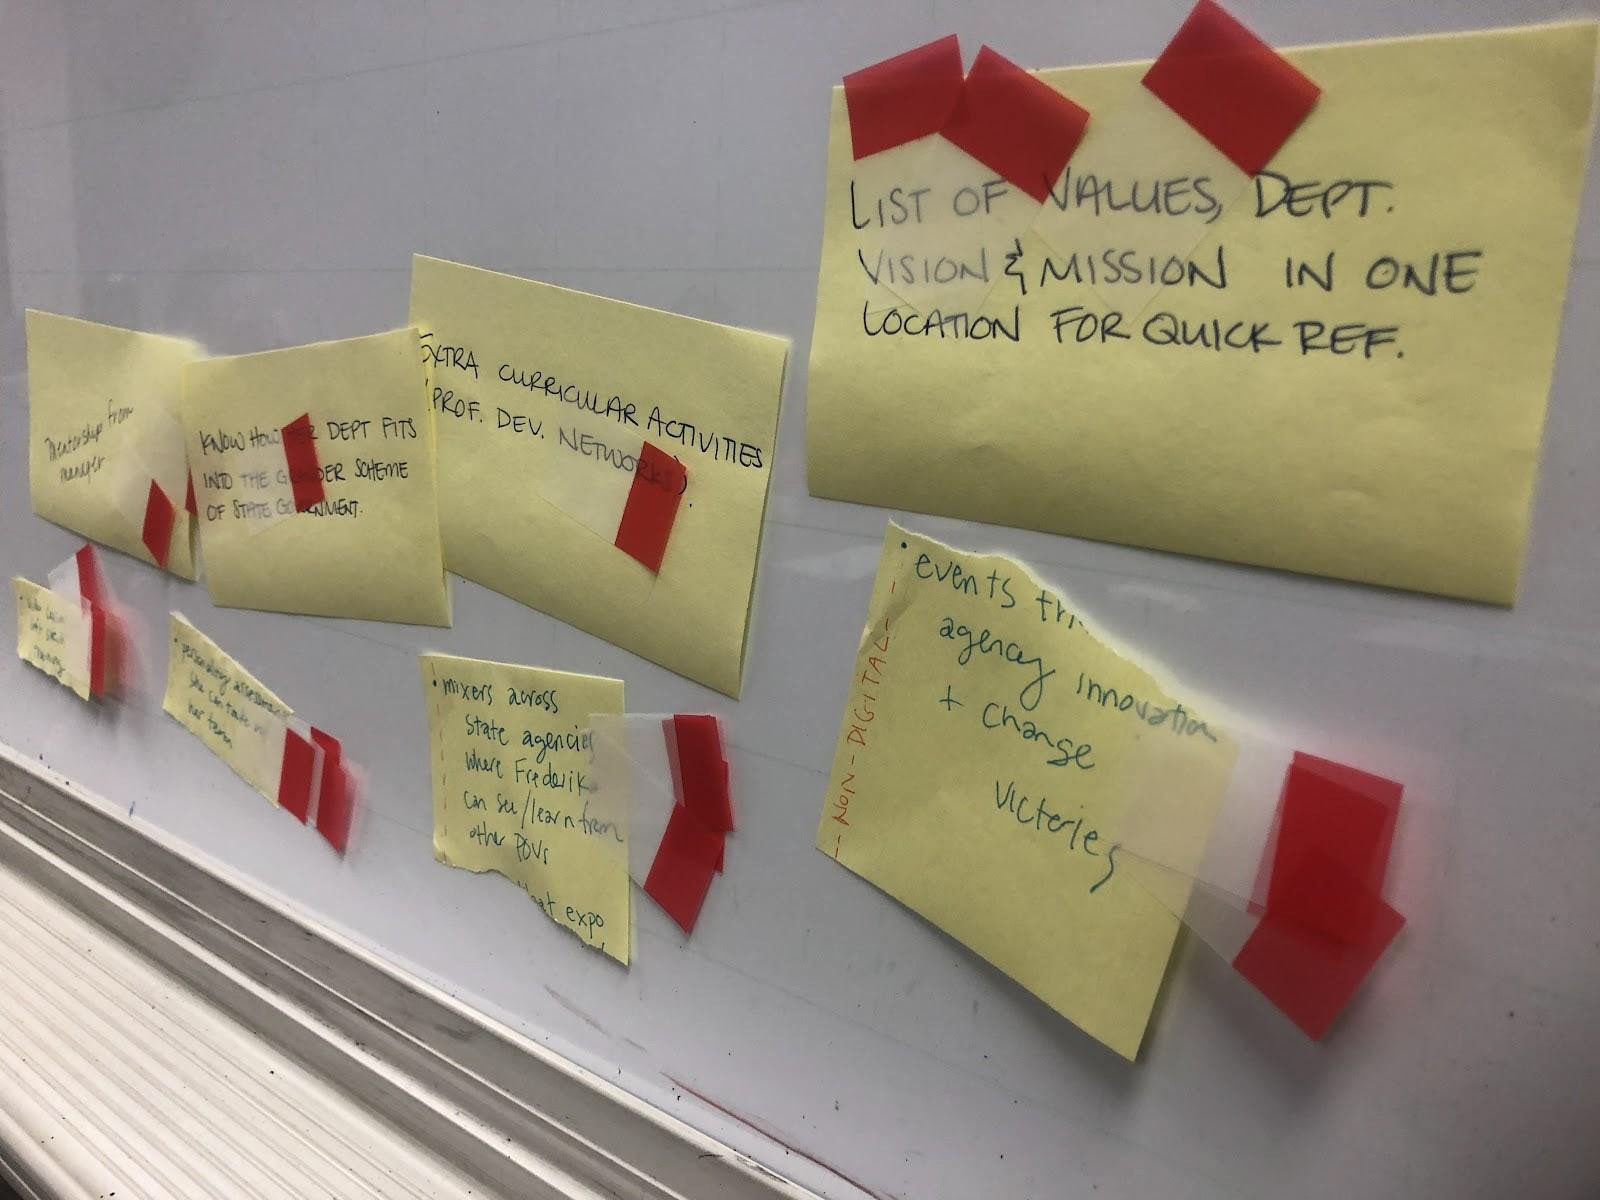 LIST OF VALUES, DEPT.
VISION & MISSION IN ONE
LOCATION FOR QUICK REF.
EXTRA CURRICULAR ACTIVITIES
(PROF. DEV. NETWORKS).
KNOW HOW HER DEPT FITS
INTO THE GRANDER SCHEME
OF STATE GOVERNMENT.
Mentorship from
manager
• personality assessment
she can take w/
her team
• mixers across
State agencies
where Frederik
can see/learn from
other POVs
expo
• events
agency innovation
+ change
victeries
-- NON-DIGITAL --